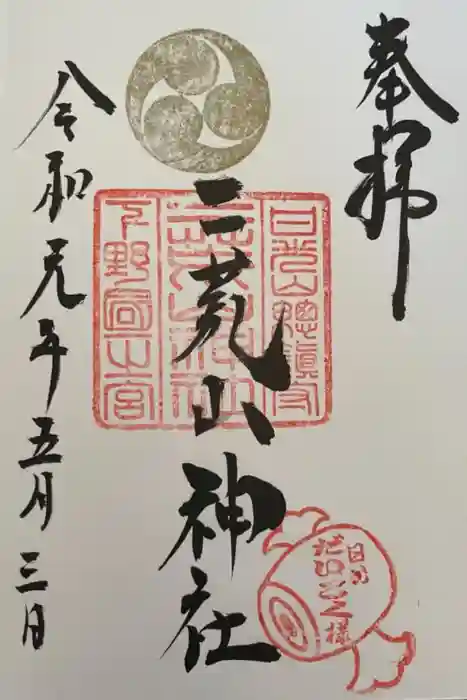 奉拝
二荒山神社
令和元年五月三日
日光山総鎮守
下野國一之宮
日光
だいこく様